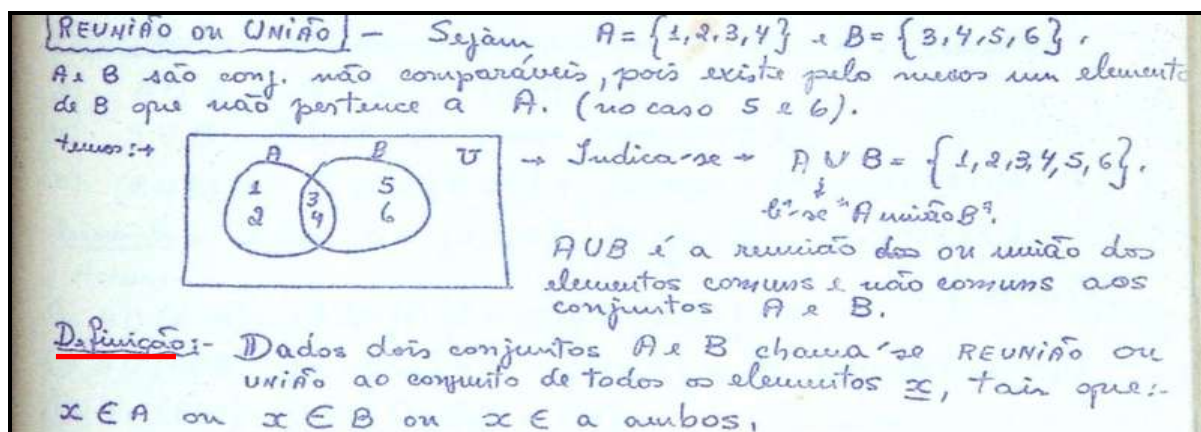 REUNIÃO ou UNIÃO - Sejam A = {1,2,3,4} e B = {3,4,5,6}.
A e B são conj. não comparáveis, pois existe pelo menos um elemento
de B que não pertence a A. (no caso 5 e 6).
temos:→ A B U → Indica-se → A U B = {1,2,3,4,5,6}.
1 2 3 4 5 6
lê-se "A união B".
AUB é a reunião dos ou união dos
elementos comuns e não comuns aos
conjuntos A e B.
Definição:- Dados dois conjuntos A e B chama-se REUNIÃO ou
UNIÃO ao conjunto de todos os elementos x, tais que:-
x ∈ A ou x ∈ B ou x ∈ a ambos,